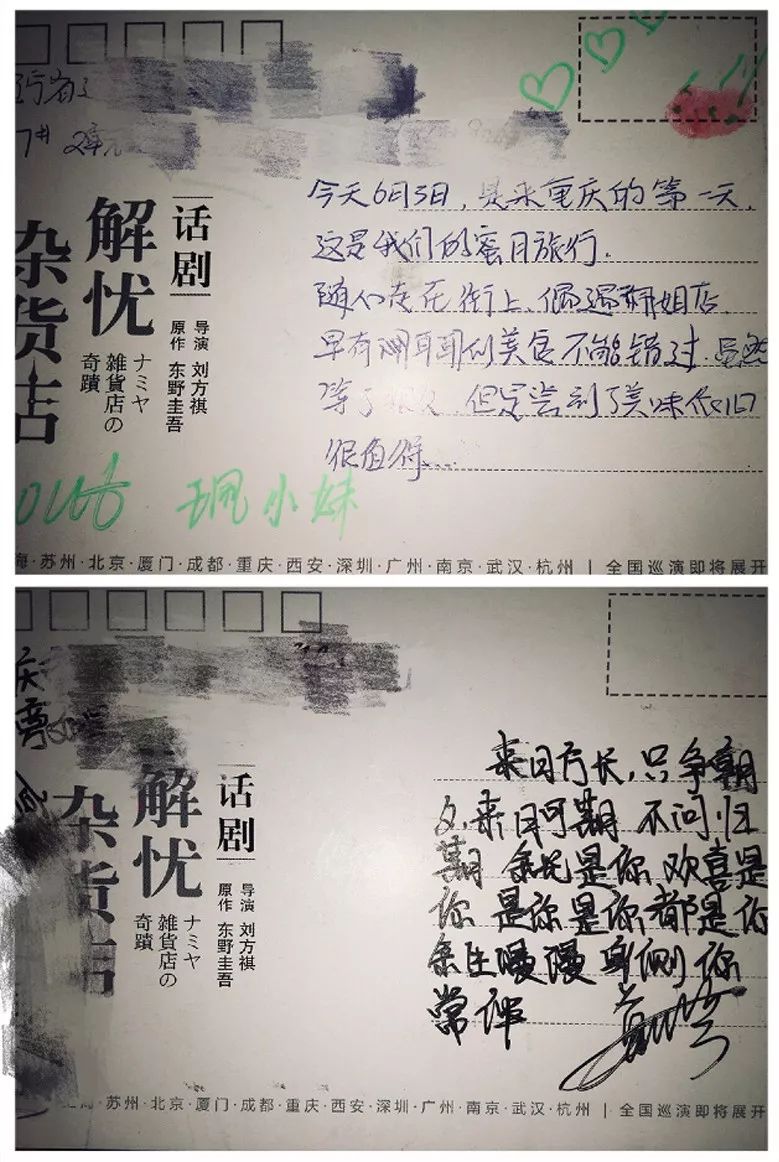 7# 2单元
今天6月3日,是来重庆的第一天,
这是我们的蜜月旅行.
随人走在街上,偶遇
早有 美食不能错过.虽然
等了很久,但是尝到了美味依旧
很值得...
话剧
解忧
杂货店
ナミヤ
雑貨店の
奇蹟
导演 刘方祺
原作 东野圭吾
珮小妹
海·苏州·北京·厦门·成都·重庆·西安·深圳·广州·南京·武汉·杭州 | 全国巡演即将展开
庆
来日方长,只争朝
夕.来日可期 不问归
期 余光是你 欢喜是
你 是你是你都是你
余生漫漫 身侧你
常伴
话剧
解忧
杂货店
ナミヤ
雑貨店の
奇蹟
导演 刘方祺
原作 东野圭吾
海·苏州·北京·厦门·成都·重庆·西安·深圳·广州·南京·武汉·杭州 | 全国巡演即将展开